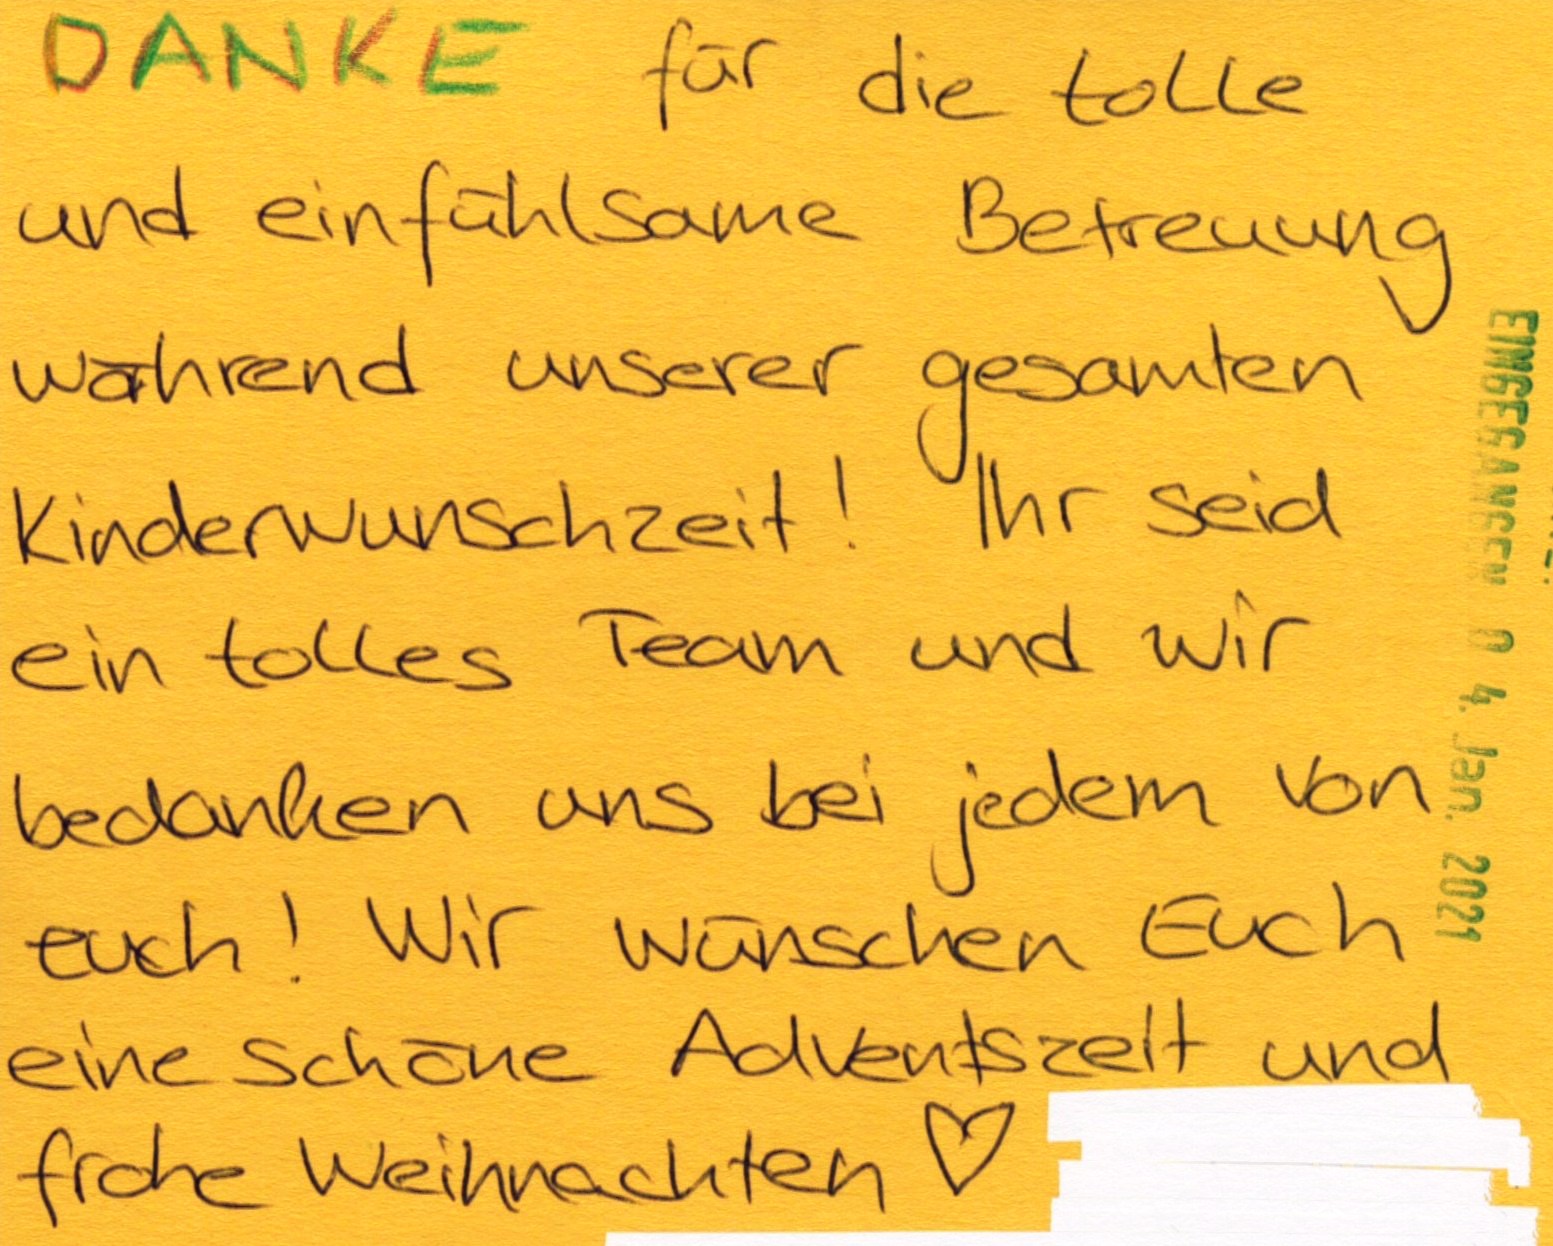 DANKE für die tolle
und einfühlsame Betreuung
während unserer gesamten
Kinderwunschzeit! Ihr seid
ein tolles Team und wir
bedanken uns bei jedem von
euch! Wir wünschen Euch
eine schöne Adventszeit und
frohe Weihnachten ♡
EINGEGANGEN 0 4. Jan. 2021